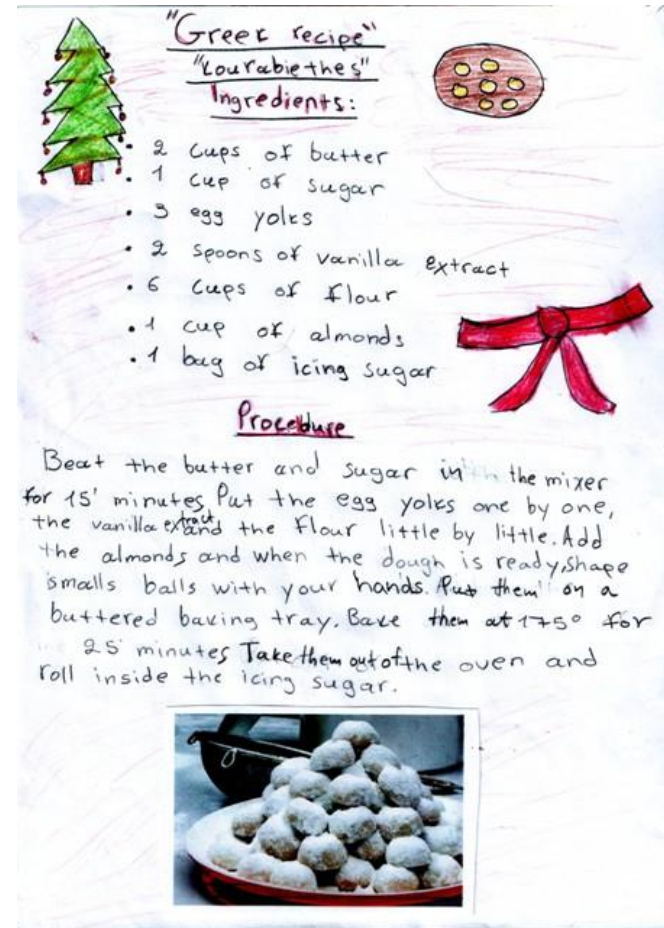 "Greek recipe"
"kourabiethes"
Ingredients:
• 2 cups of butter
• 1 cup of sugar
• 3 egg yolks
• 2 spoons of vanilla extract
• 6 cups of flour
• 1 cup of almonds
• 1 bag of icing sugar
Procedure
Beat the butter and sugar in the mixer
for 15' minutes. Put the egg yolks one by one,
the vanilla extract and the flour little by little. Add
the almonds and when the dough is ready, shape
smalls balls with your hands. Put them on a
buttered baking tray. Bake them at 175° for
25' minutes Take them out of the oven and
roll inside the icing sugar.